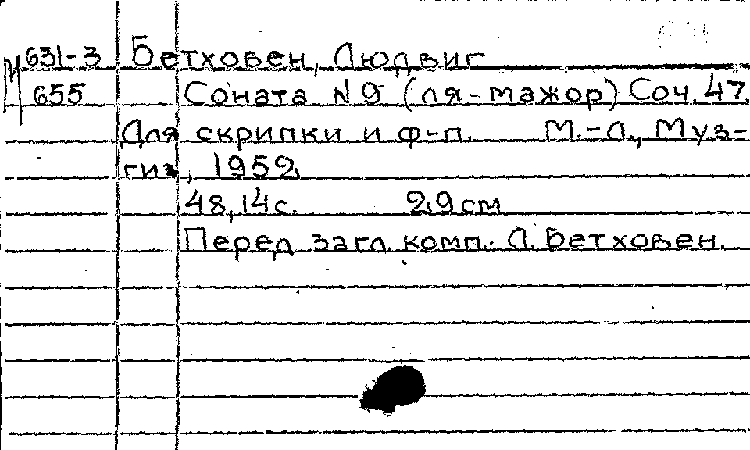 И 631-3 Бетховен, Людвиг
655 Соната N 9 (ля-мажор) Соч. 47.
Для скрипки и ф-п. М.-Л., Муз-
гиз, 1952.
48, 14 с. 29 см
Перед загл. комп.: Л. Бетховен.